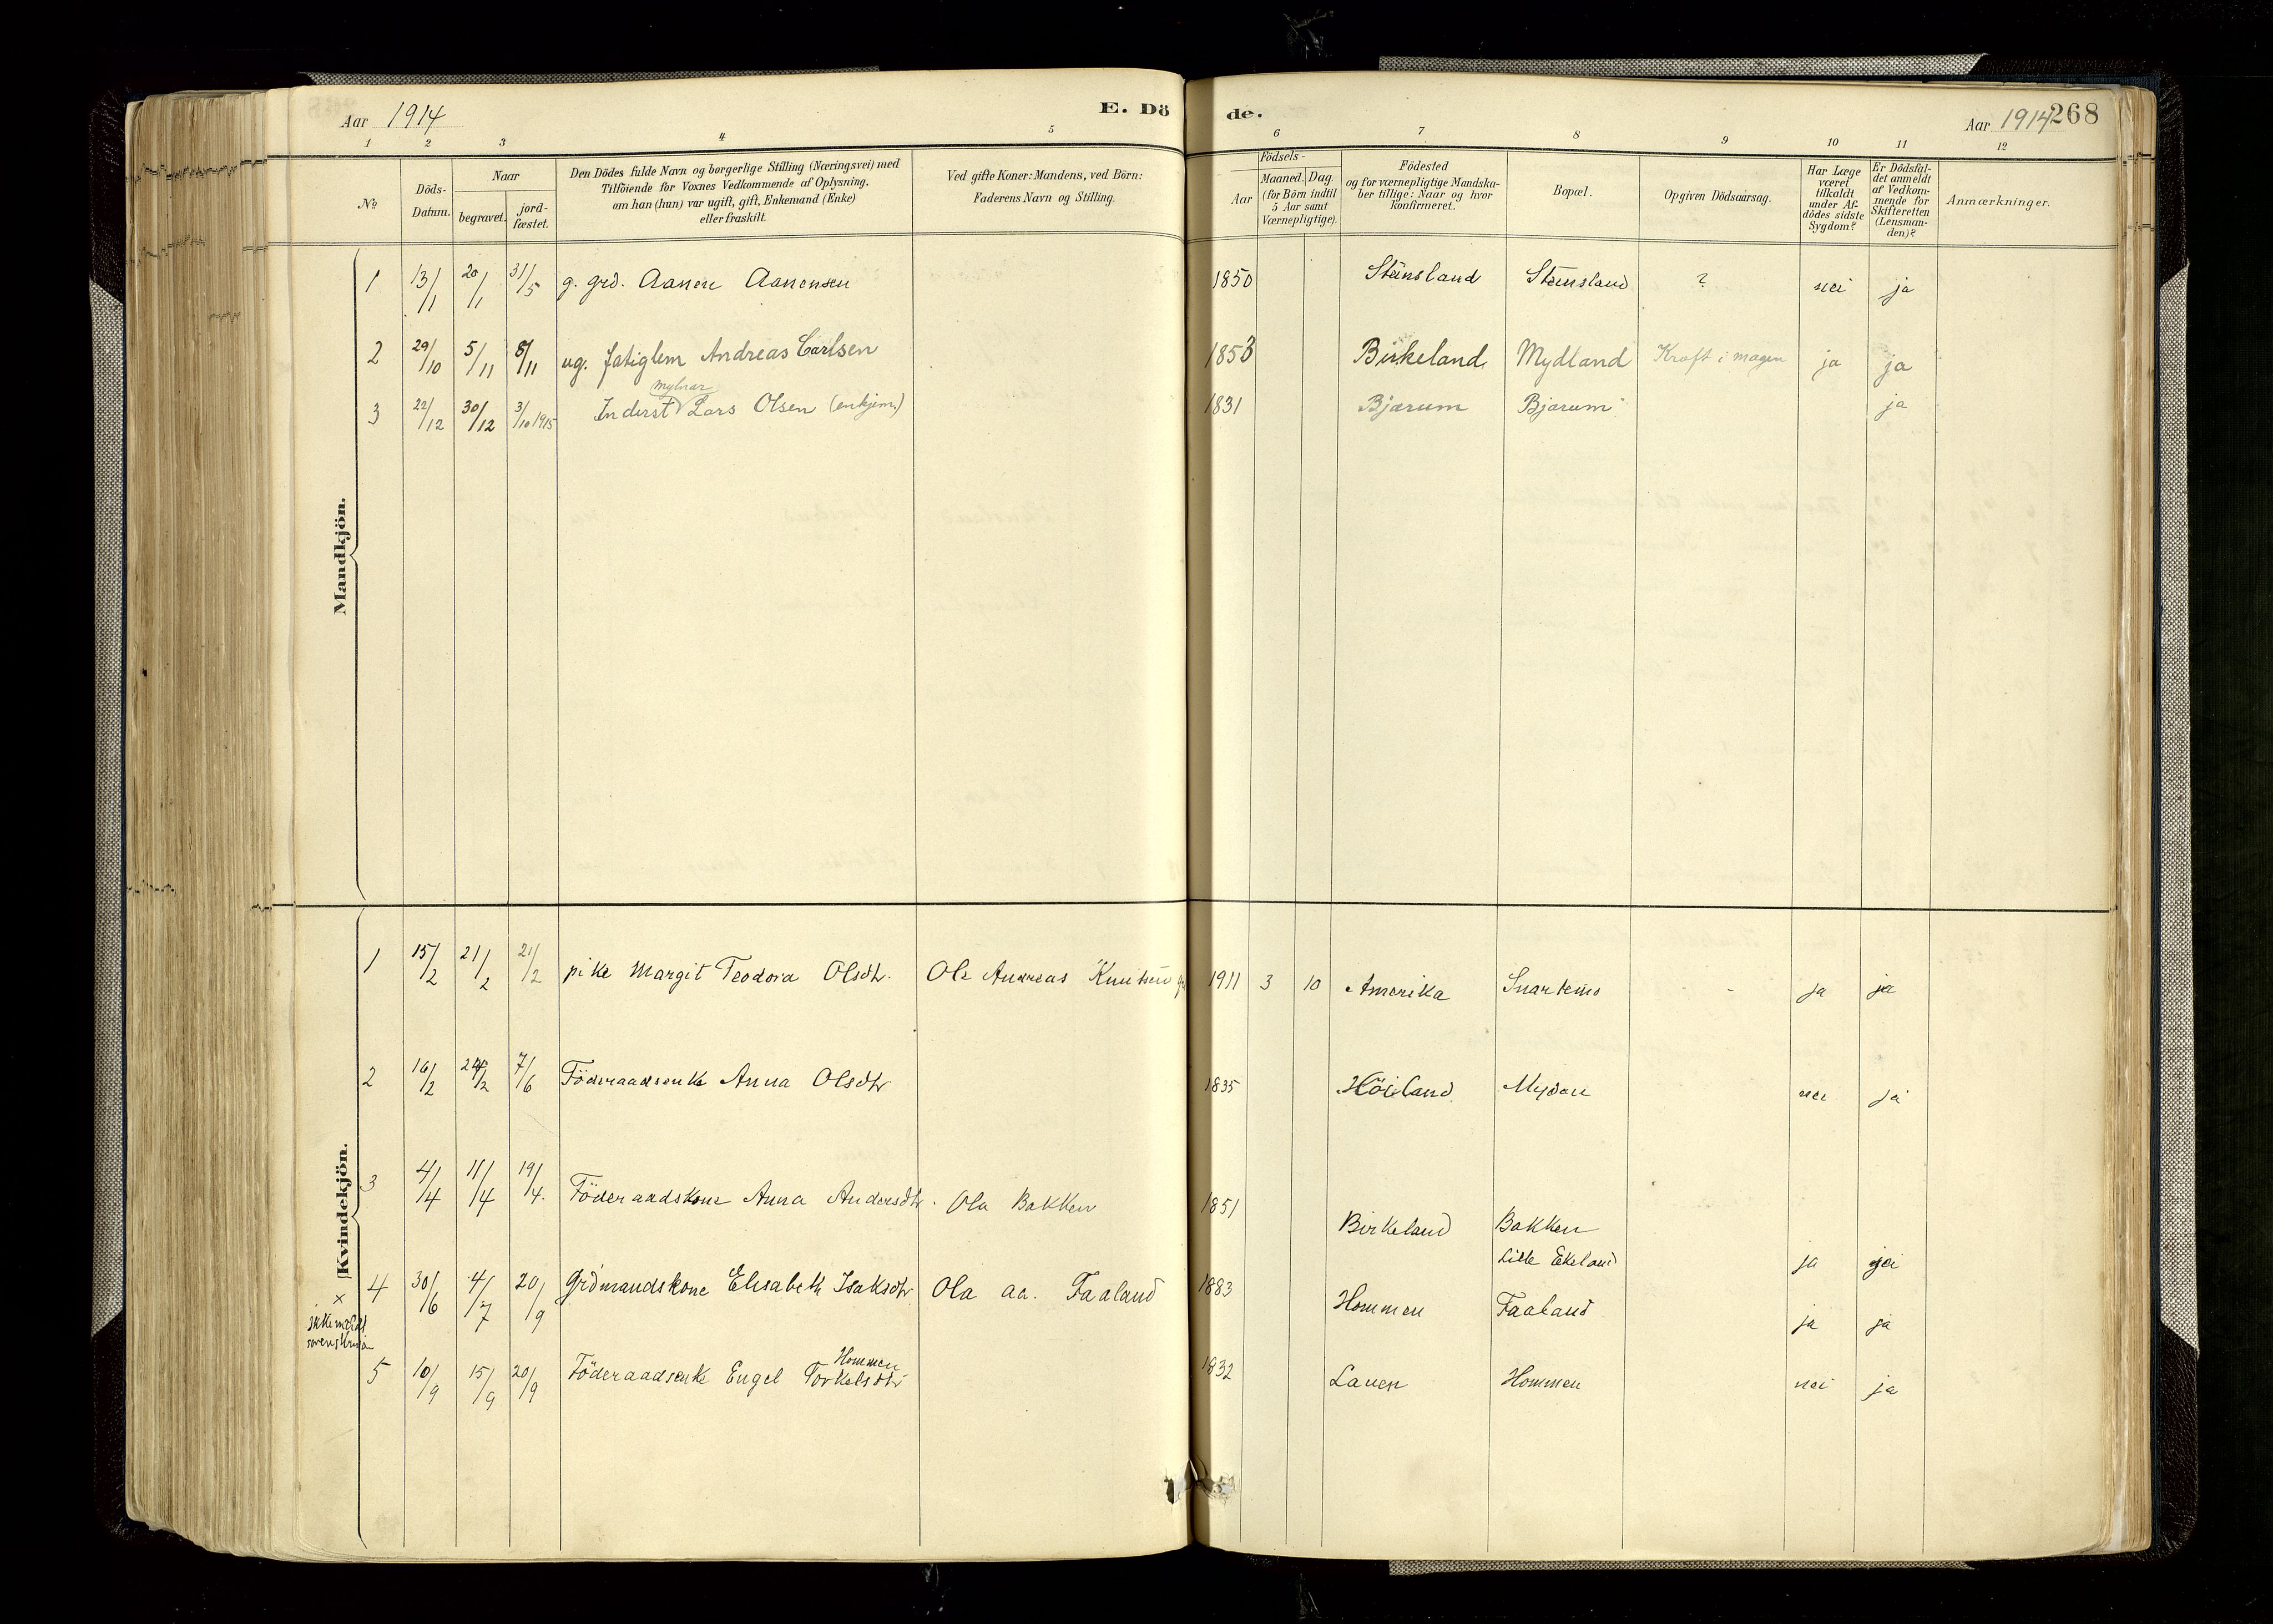 Aar 1914
E. Dö de.
Aar 1914 268
1 2 3 4 5 6 7 8 9 10 11 12
No
Döds-Datum.
Naar
begravet.
jord-fæstet.
Den Dödes fulde Navn og borgerlige Stilling (Næringsvei) med
Tilföiende for Voxnes Vedkommende af Oplysning,
om han (hun) var ugift, gift, Enkemand (Enke)
eller fraskilt.
Ved gifte Koner: Mandens, ved Börn:
Faderens Navn og Stilling.
Födsels-
Aar
Maaned. Dag.
(for Börn indtil
5 Aar samt
Værnepligtige).
Födested
og for værnepligtige Mandska-
ber tillige: Naar og hvor
konfirmeret.
Bopæl.
Opgiven Dödsaarsag.
Har Læge
været
tilkaldt
under Af-
dödes sidste
Sygdom?
Er Dödsfal-
det anmeldt
af Vedkom-
mende for
Skifteretten
(Lensman-
den)?
Anmærkninger.
Mandkjön.
1 13/1 20/1 31/5 g. grd. Aanen Aanensen 1850 Stensland Stensland ? nei ja
2 29/10 5/11 8/11 ug. fatiglem Andreas Carlsen 1853 Birkeland Mydland Kræft i magen ja ja
mylnar
3 22/12 30/12 3/10 1915 Inderst Lars Olsen (enkjem.) 1831 Bjærum Bjærum ja
Kvindekjön.
1 15/2 21/2 21/2 pike Margit Teodora Olsdtr. Ole Andreas Knutsen 1911 3 10 Amerika Snartemo - ja ja
2 16/2 24/2 7/6 Föderaadsenke Anna Olsdtr 1835 Höiland Mydan nei ja
3 4/4 11/4 19/4. Föderaadskone Anna Andersdtr. Ola Bakken 1851 Birkeland Bakken
Lille Ekeland ja nei
4 30/6 4/7 20/9 Grdmandskone Elisabeth Isaksdtr Ola Aa. Faaland 1883 Hommen Faaland ja ja
x
ikke meldt
Hommen
5 10/9 15/9 20/9 Föderaadsenke Engel Torkelsdtr 1832 Lauen Hommen nei ja